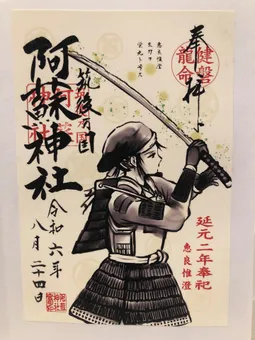 奉拝
健磐
龍命
恵良惟澄
筑後国
阿蘇神社
延元二年奉祀
恵良惟澄
令和六年
八月二十四日